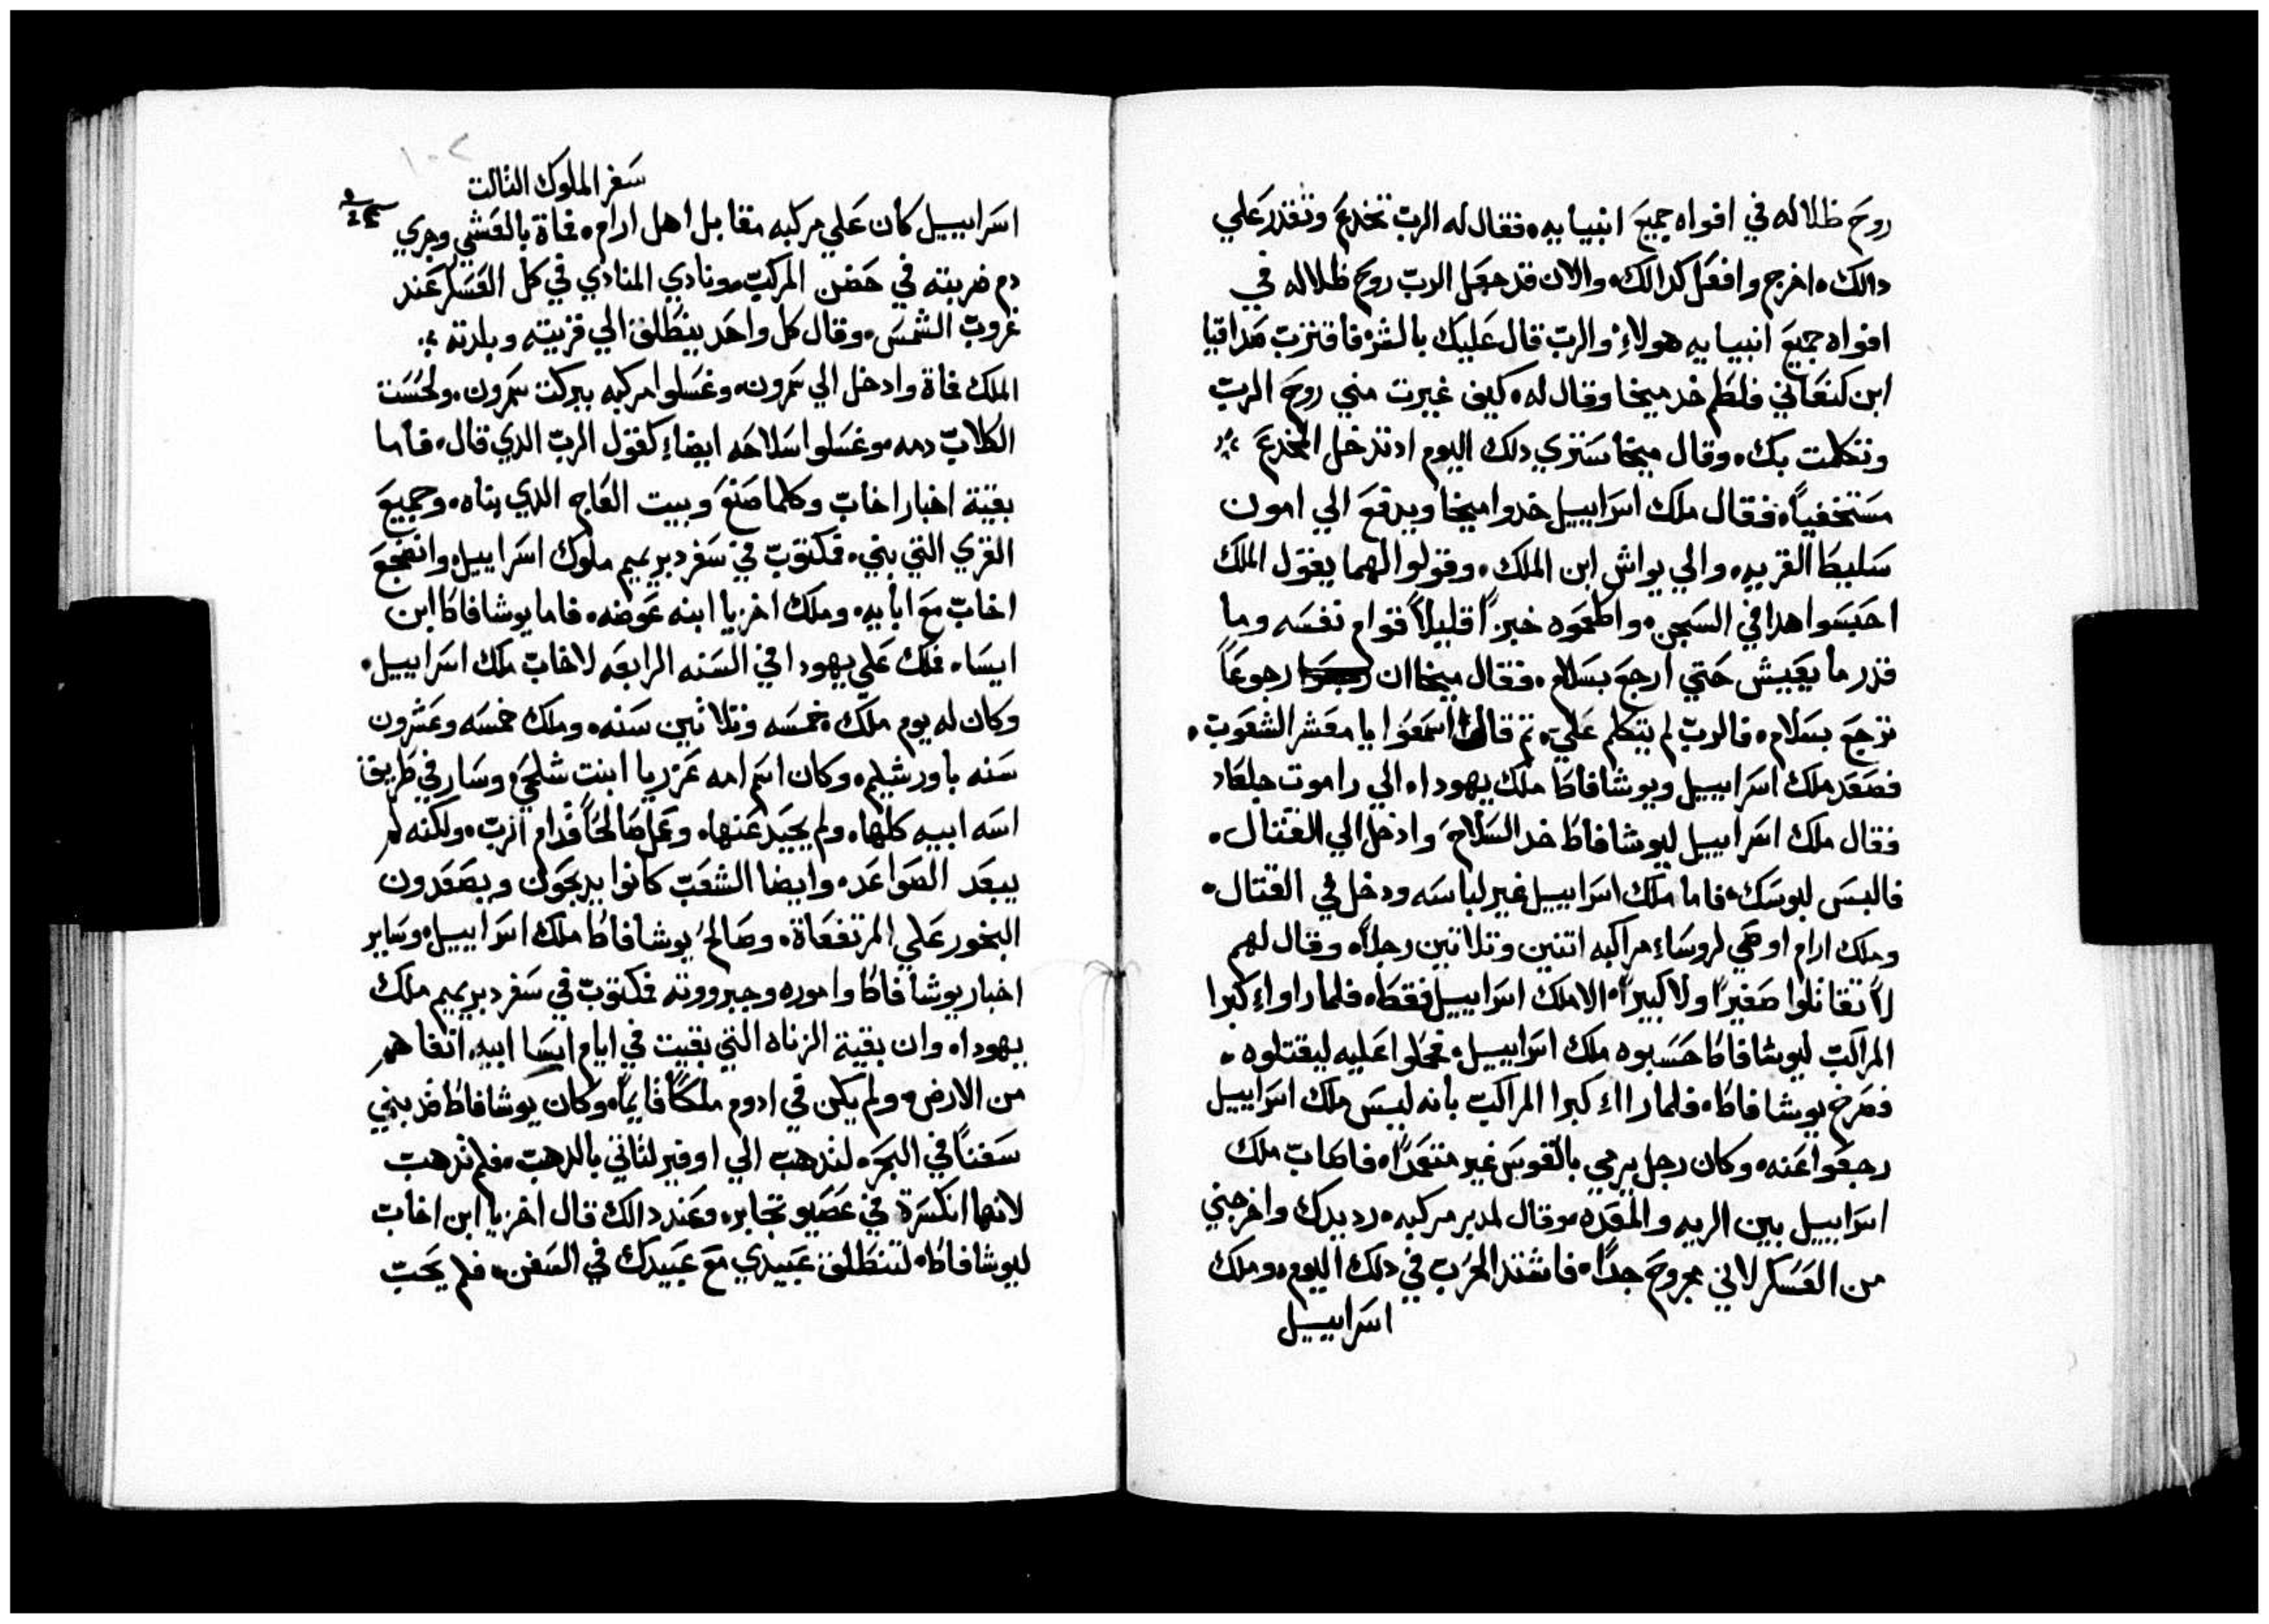 روح ظلاله في افواه جميع انبيايه، فقال له الرب تخدع وتقدر علي
دالك، اخرج وافعل كدالك، والان قد جعل الرب روح ظلاله في
افواه جميع انبيايه هولاء والرب قال عليك بالشر، فاقترب صداقيا
ابن كنعاني فلطم خد ميخا وقال له، كيف غيرت مني روح الرب
وتكلمت بك، وقال ميخا ستري دلك اليوم ادتدخل المخدع
مستخفياً، فقال ملك اسراييل خدوا ميخا ويدفع الي امون
سليط القريه، والي يواش ابن الملك، وقولوا لهما يقول الملك
احبسوا هدا في السجن، واطعموه خبزاً قليلاً قوام نفسه وما
قدر ما يعيش حتي ارجع بسلام، فقال ميخا ان رجوعاً
ترجع بسلام، فالرب لم يتكلم علي، تم قال اسمعوا يا معشر الشعوب،
فصعد ملك اسراييل ويوشافاط ملك يهودا، الي راموت جلعاد
فقال ملك اسراييل ليوشافاط خد السلاح وادخل الي القتال،
فالبس لبوسك، فاما ملك اسراييل غير لباسه ودخل في القتال،
وملك ارام اوصي لروساء مراكبه اتنين وتلاتين رجلاً، وقال لهم
لا تقاتلوا صغيراً ولا كبيراً، الا ملك اسراييل فقط، فلما راواء كبرا
المراكب ليوشافاط حسبوه ملك اسراييل، فحملوا عليه ليقتلوه،
فصرخ يوشافاط، فلما رااء كبرا المراكب بانه ليس ملك اسراييل
رجعوا عنه، وكان رجل يرمي بالقوس غير متعمداً، فاصاب ملك
اسراييل بين الريه والمعده، وقال لمدبر مركبه، رد يدك واخرجني
من العسكر لاني مجروح جداً، فاشتد الحرب في دلك اليوم، وملك
اسراييل
١٠٢
سفر الملوك التالت
اسراييل كان علي مركبه مقابل اهل ارام، فماة بالعشي وجري
دم ضربته في حضن المركب، ونادي المنادي في كل العسكر عند
غروب الشمس، وقال كل واحد ينطلق الي قريته وبلدته
الملك فماة وادخل الي سمرون، وغسلوا مركبه ببركت سمرون، ولحست
الكلاب دمه، وغسلوا سلاحه ايضاء كقول الرب الدي قال، فاما
بقية اخبار اخاب وكلما صنع وبيت العاج الدي بناه، وجميع
القري التي بني، فمكتوب في سفر دبريميم ملوك اسراييل، واضجع
اخاب مع ابايه، وملك اخزيا ابنه عوضه، فاما يوشافاط ابن
ايسا، فملك علي يهودا في السنه الرابعه لاخاب ملك اسراييل،
وكان له يوم ملك، خمسه وتلاتين سنه، وملك خمسه وعشرون
سنه باورشيلم، وكان اسم امه عزريا ابنت شلحي، وسار في طريق
اسه ابيه كلها، ولم يحيد عنها، وعمل صالحاً قدام الرب، ولكنه لم
يبعد الصواعد، وايضا الشعب كانوا يدبحون ويصعدون
البخور علي المرتفعاة، وصالح يوشافاط ملك اسراييل، وساير
اخبار يوشافاط واموره وجبرووته فمكتوب في سفر دبريميم ملك
يهودا، وان بقية الزناه التي بقيت في ايام ايسا ابيه، اتفاهم
من الارض، ولم يكن في ادوم ملكاً قايماً، وكان يوشافاط قد بني
سفناً في البحر، لتدهب الي اوفير لتاتي بالدهب، فلم تدهب
لانها انكسرة في عصيو تجابر، وعند دالك قال اخزيا ابن اخاب
ليوشافاط، لتنطلق عبيدي مع عبيدك في السفن، فلم يحب